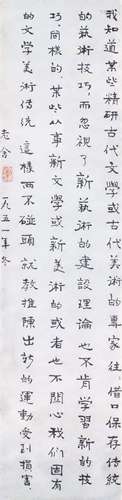 我知道某些精研古代文学或古代美术的专家往往借口保存古代
的艺术技巧而忽视了新艺术的建设理论也不肯学习新的技
巧同样的某些从事新文学或新美术的或者也不关心我们固有
的文学美术传统这样两不碰头就教推陈出新的运动受到损害
老舍 一九五一年冬